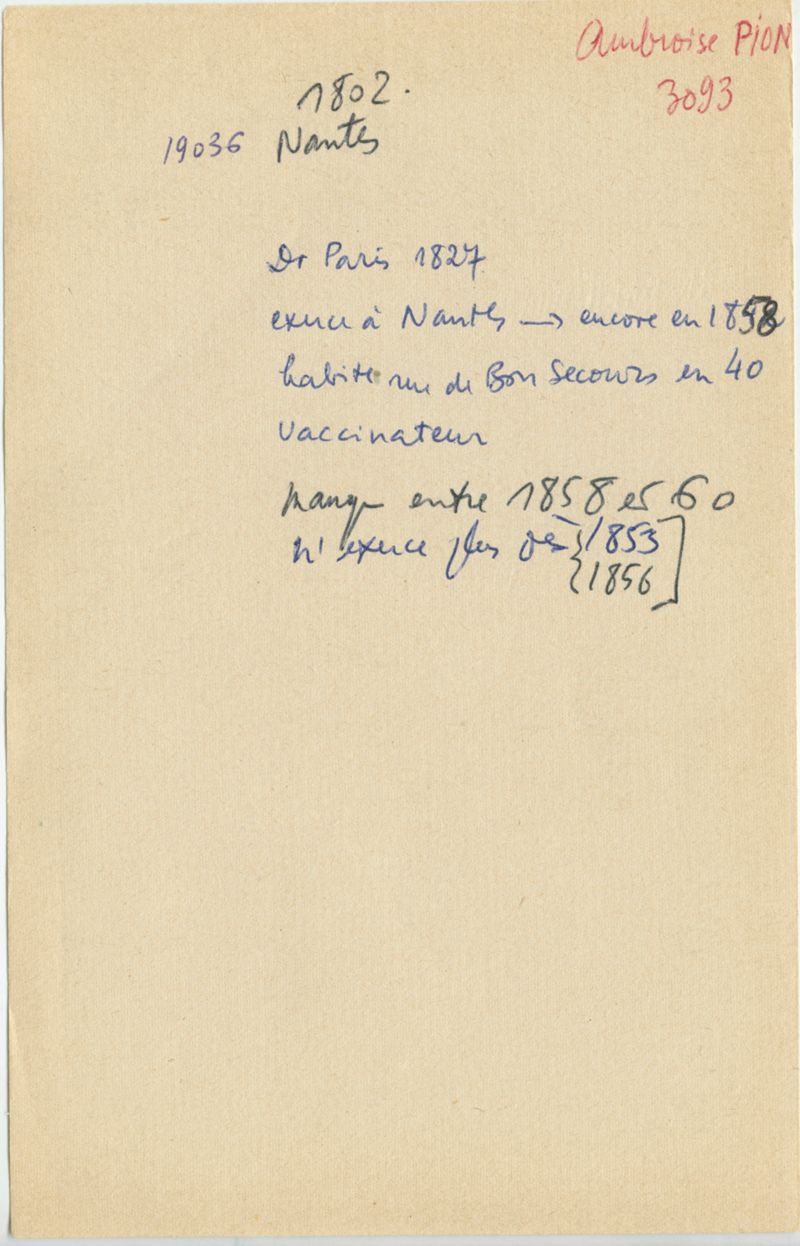 Ambroise PION
3093
1802.
19036 Nantes
Dr Paris 1827
exerce à Nantes → encore en 1858
habite rue de Bon Secours en 40
Vaccinateur
manque entre 1858 et 60
n'exerce plus dès { 1853
{ 1856 ]